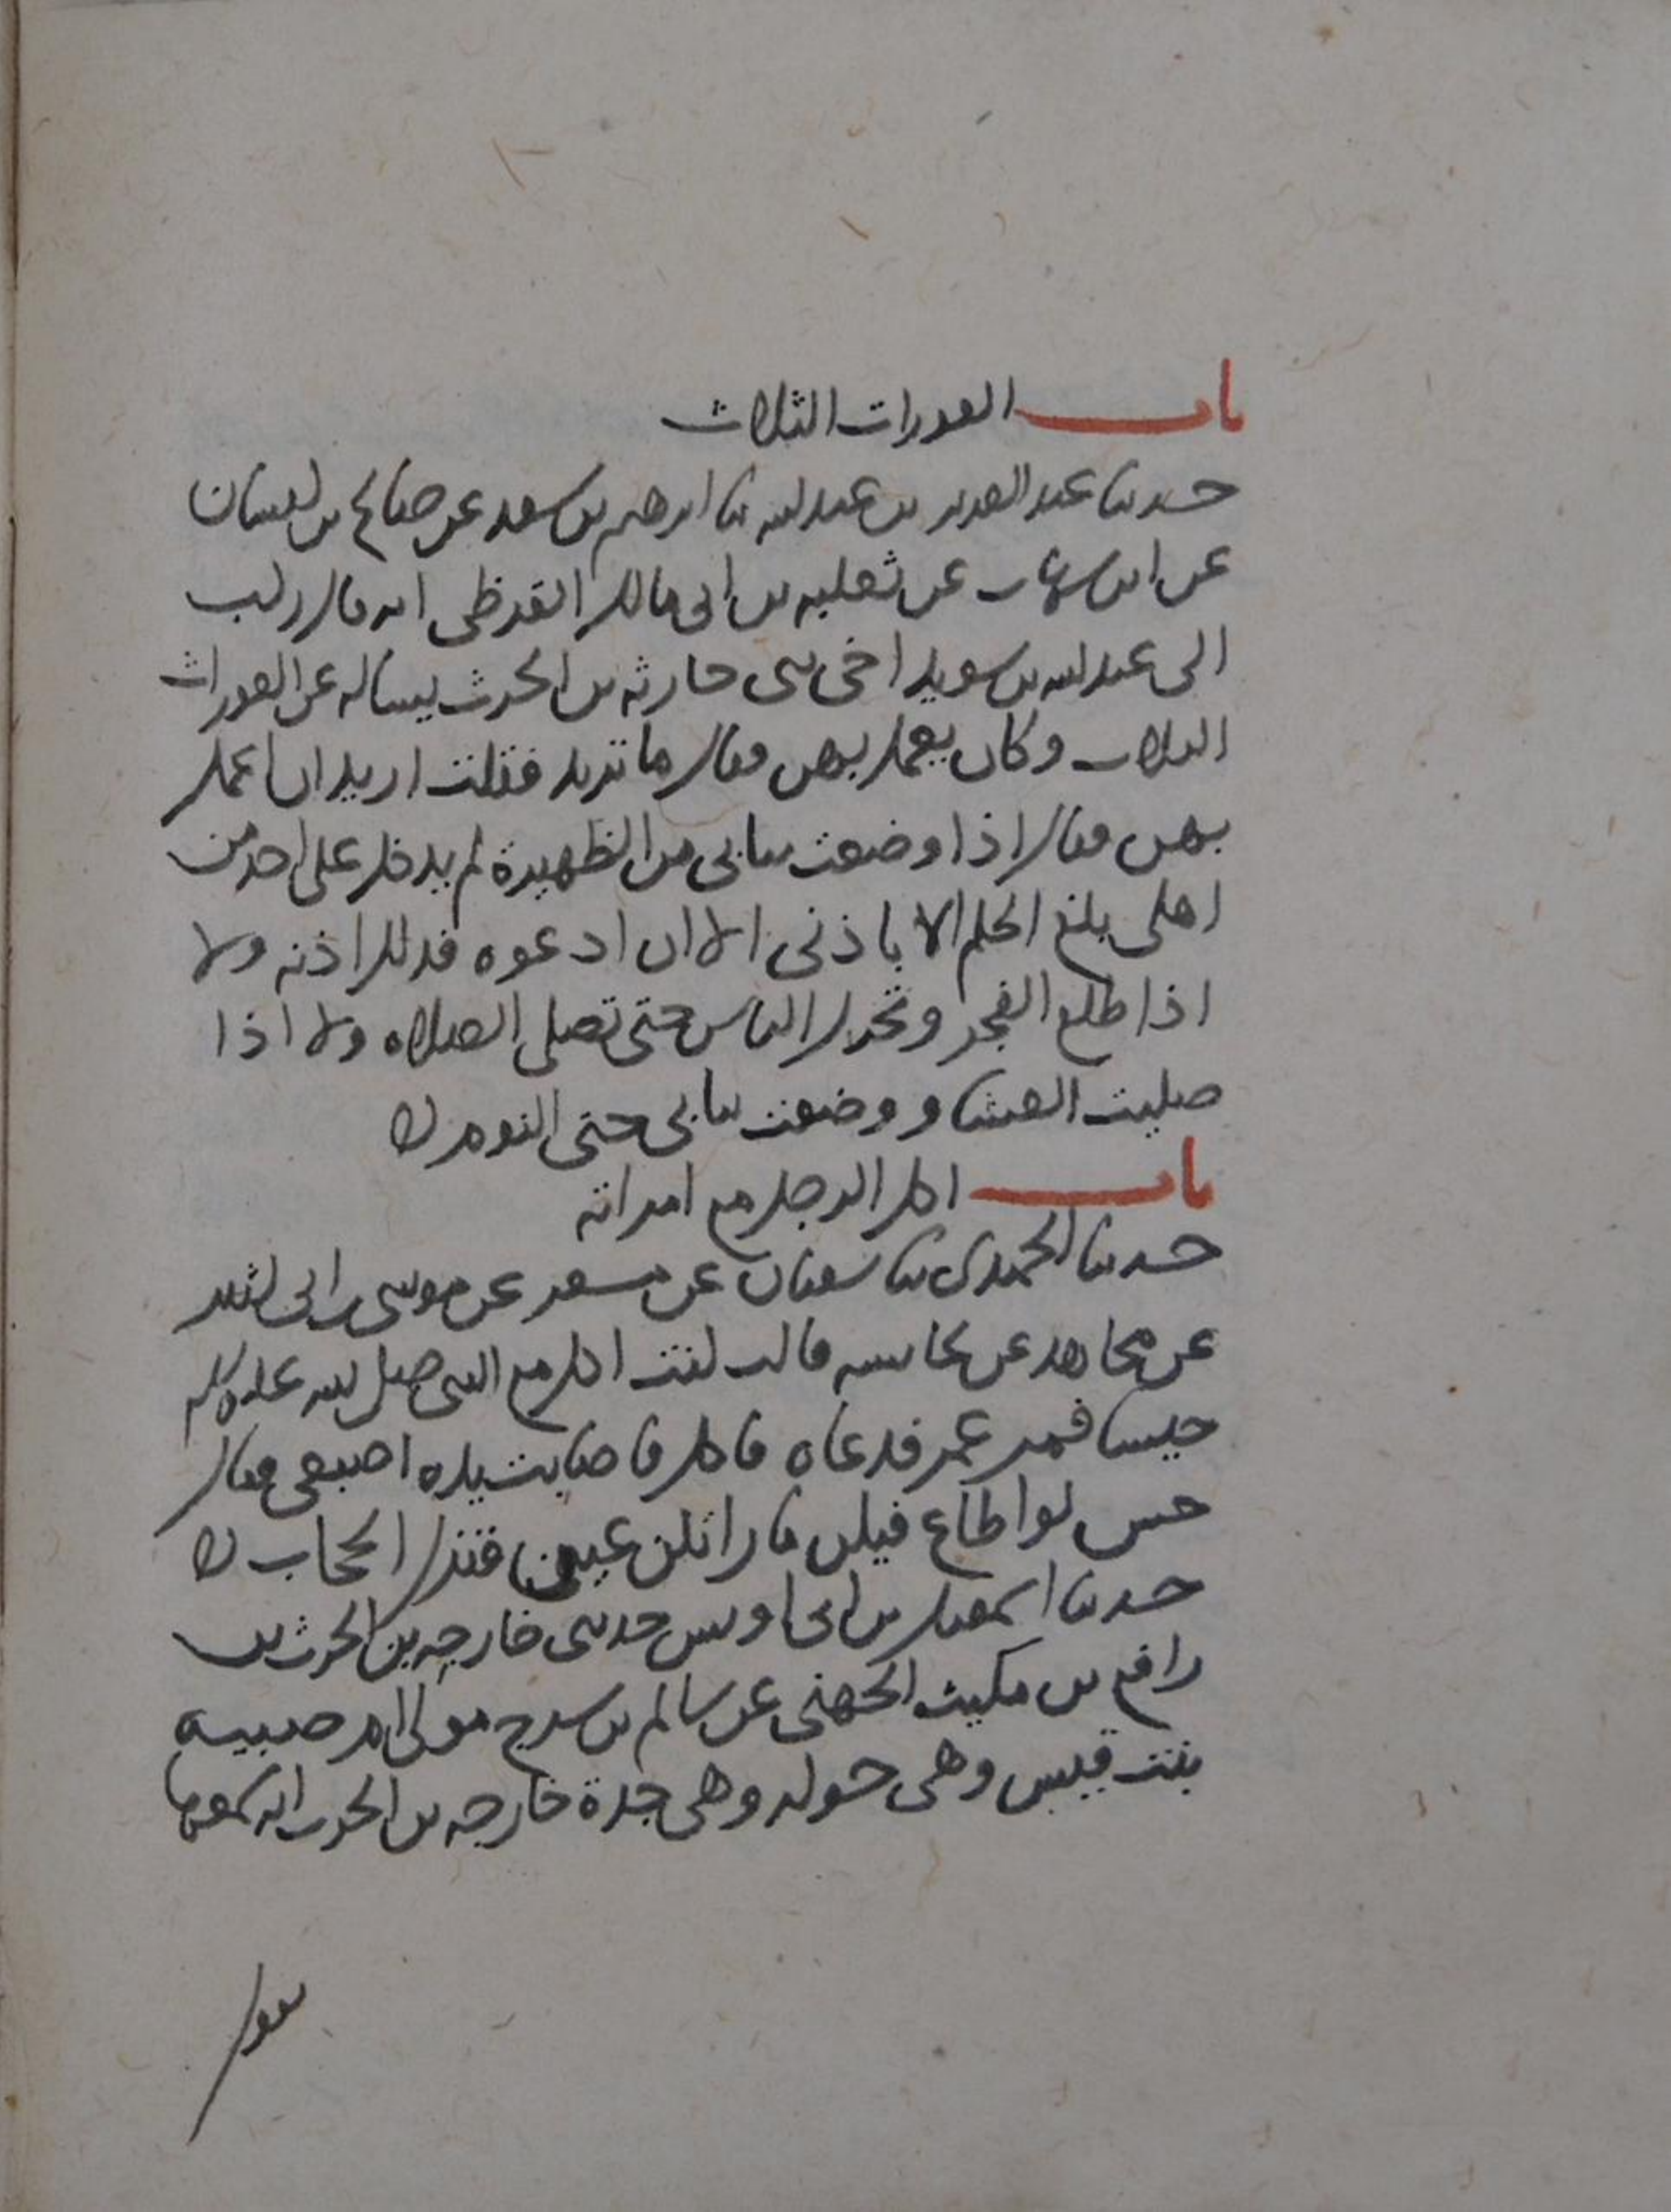 باب العورات الثلاث
حدثنا عبد العزيز بن عبد الله ثنا ابرهيم بن سعد عن صالح بن كيسان
عن ابن شهاب عن ثعلبه بن ابي مالك القرظي انه قال ركب
الى عبد الله بن سويد اخي بني حارثه بن الحرث يساله عن العورات
الثلاث وكان يعمل بهن فقال ما تريد فقلت اريد ان اعمل
بهن فقال اذا وضعت ثيابي من الظهيرة لم يدخل علي احد من
اهلي بلغ الحلم الا باذني الا ان ادعوه فذلك اذنه ولا
اذا طلع الفجر وتحرك الناس حتى تصلى الصلاه ولا اذا
صليت العشاء ووضعت ثيابي حتى النوم
باب اكل الرجل مع امراته
حدثنا الحميدي ثنا سفيان عن مسعر عن موسى بن ابي كثير
عن مجاهد عن عائشه قالت كنت اكل مع النبي صلى الله عليه وسلم
حيسا فمر عمر فدعاه فاكل فاصابت يده اصبعي فقال
حس لو اطاع فيكن ما راتكن عين فنزل الحجاب
حدثنا اسمعيل بن ابي اويس حدثني خارجه بن الحرث بن
رافع بن مكيث الجهني عن سالم بن سرج مولى ام صبيه
بنت قيس وهي خوله وهي جدة خارجه بن الحرث انه سمعها
تقول